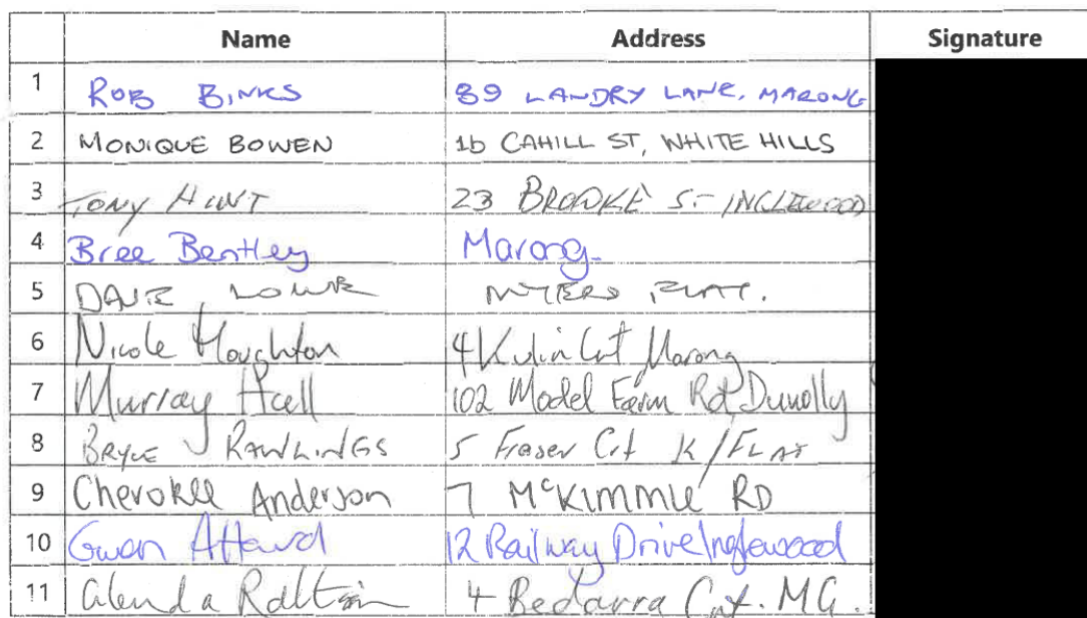 Name Address Signature
1 ROB BINKS 89 LANDRY LANE, MARONG
2 MONIQUE BOWEN 1b CAHILL ST, WHITE HILLS
3 TONY HUNT 23 BROOKE ST INGLEWOOD
4 Bree Bentley Marong.
5 DAVE LOWE MYERS FLAT.
6 Nicole Houghton 4 Kulin Crt Marong
7 Murray Hall 102 Model Farm Rd Dunolly
8 BRYCE RAWLINGS 5 Fraser Crt K/FLAT
9 Cherokee Anderson 7 McKIMMIE RD
10 Gwen Attard 12 Railway Drive Inglewood
11 Glenda 4 Bedarra Crt. MG.